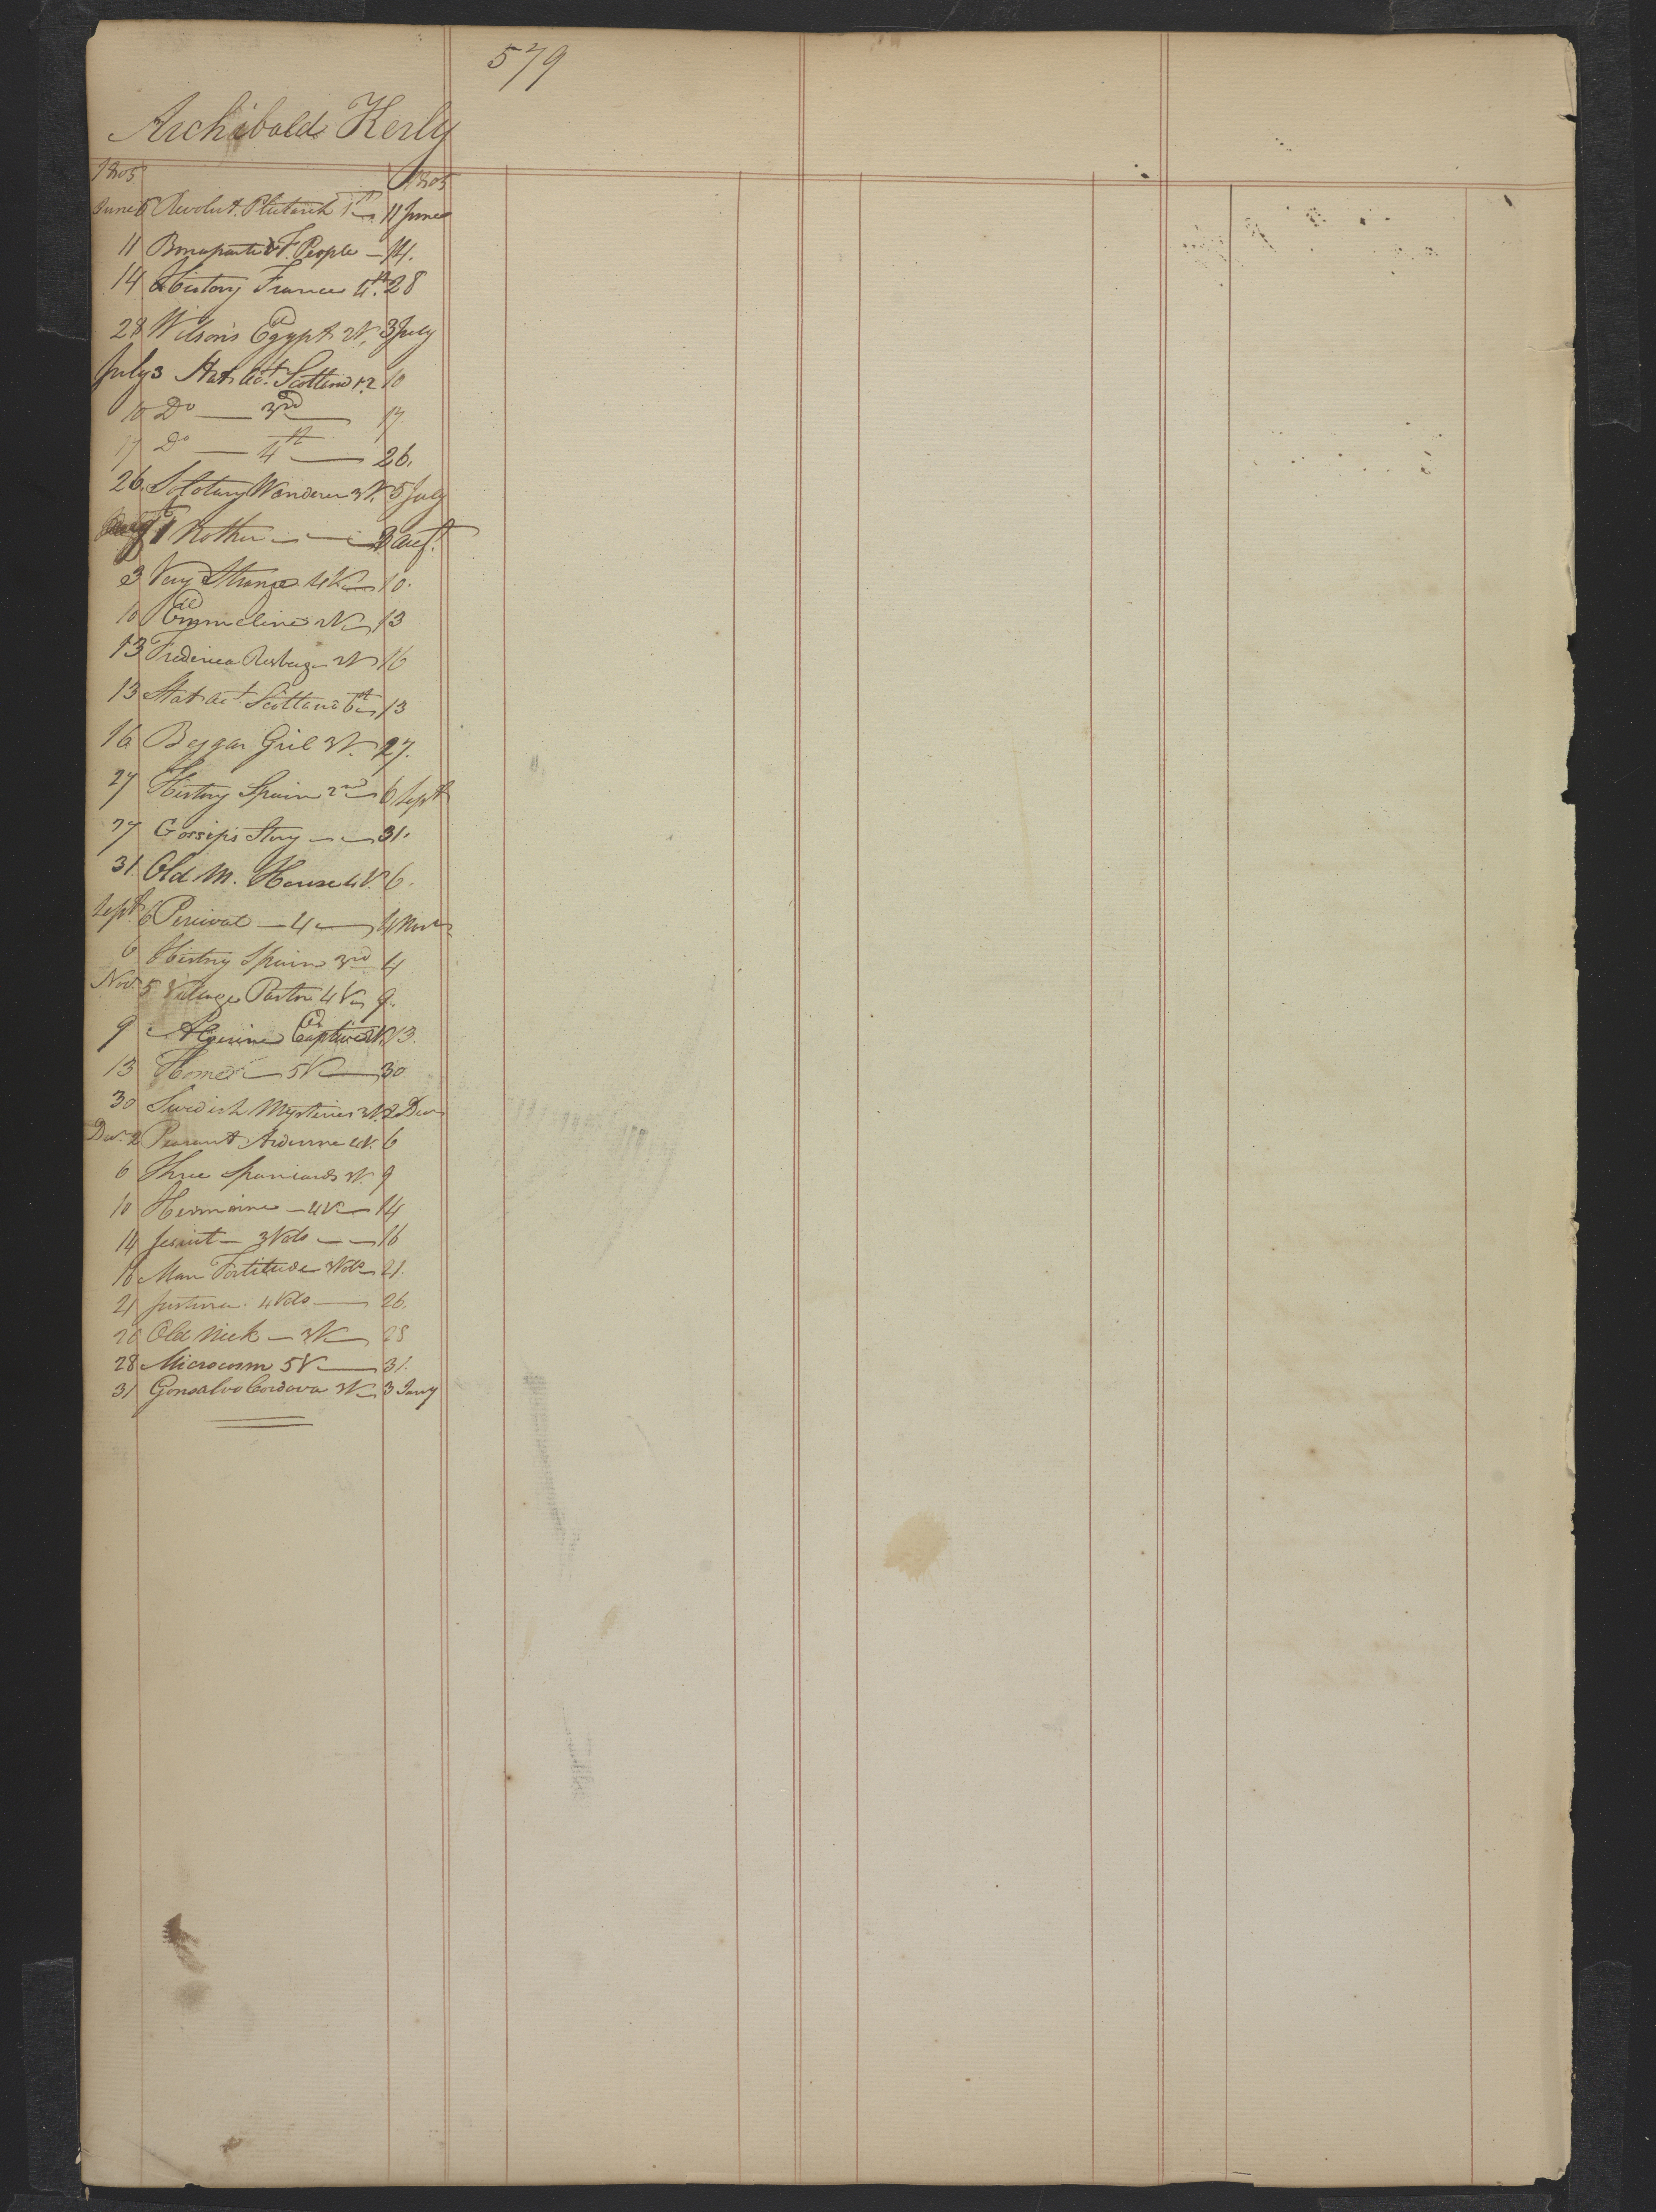 579
Archibald Kerly
1805 1805
June 6 Revolut. Plutarch 1st 11 June
11 Bonaparte & F. People — 14.
14 History France 4th. 28
28 Wilson's Egypt 2V. 3 July
July 3 Stat. Act. Scotland 12 10
10 Do — 3rd — 17.
17 Do — 4th — 26.
26. Solotary Wanderer 3V. 5 July
1 Rother — — 3 Augt.
3 Very Strange 4V — 10.
10 Emmeline 2V — 13
13 Frederica Risberg 2V 16
13 Stat. Act. Scotland 6th 13
16 Beggar Gril 3V. 27.
27 History Spain 2nd 6 Sept
27 Gossip's Story — — 31.
31. Old M. House 4V. 6.
Sept. 6 Percival — 4 — 4 Novr
6 History Spain 3rd 4
Nov. 5 Village Pastor 4V 9.
9 Algerine Captive 2V. 13.
13 Home — 5V — 30
30 Swedish Mysteries 3V. 2 Decr
Decr. 2 Peasant Ardenne 4V. 6
6 Three Spaniards 3V. 9
10 Hermione — 4V — 14
14 Jesuit — 3 Vols — — 16
16 Man Fortitude 3Vols 21.
21 Justina. 4 Vols — 26.
26 Old Nick — 3V — 28
28 Microcosm 5V — 31.
31 Gonsalvo Cordova 3V — 3 Jany